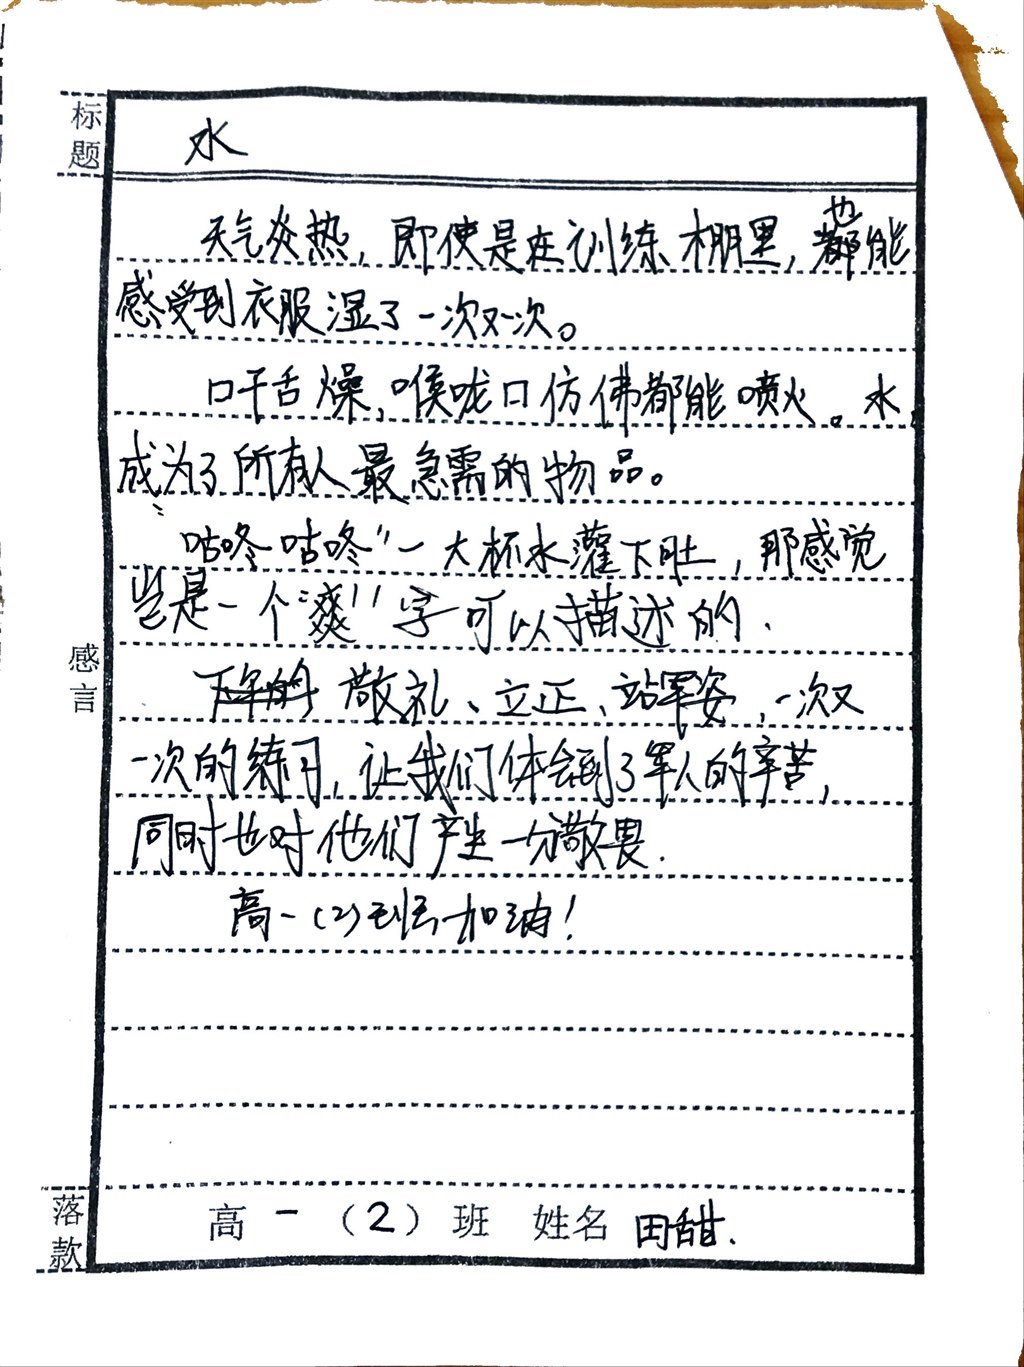 标题
水
天气炎热，即使是在训练棚里，也能
感受到衣服湿了一次又一次。
口干舌燥，喉咙口仿佛都能喷火。水，
成为了所有人最急需的物品。
"咕咚咕咚"一大杯水灌下肚，那感觉
是一个"爽"字可以描述的.
敬礼、立正、站军姿，一次又
一次的练习，让我们体会到了军人的辛苦，
同时也对他们产生一份敬畏.
高一(2)班加油！
感言
落款
高一（2）班 姓名 田甜.